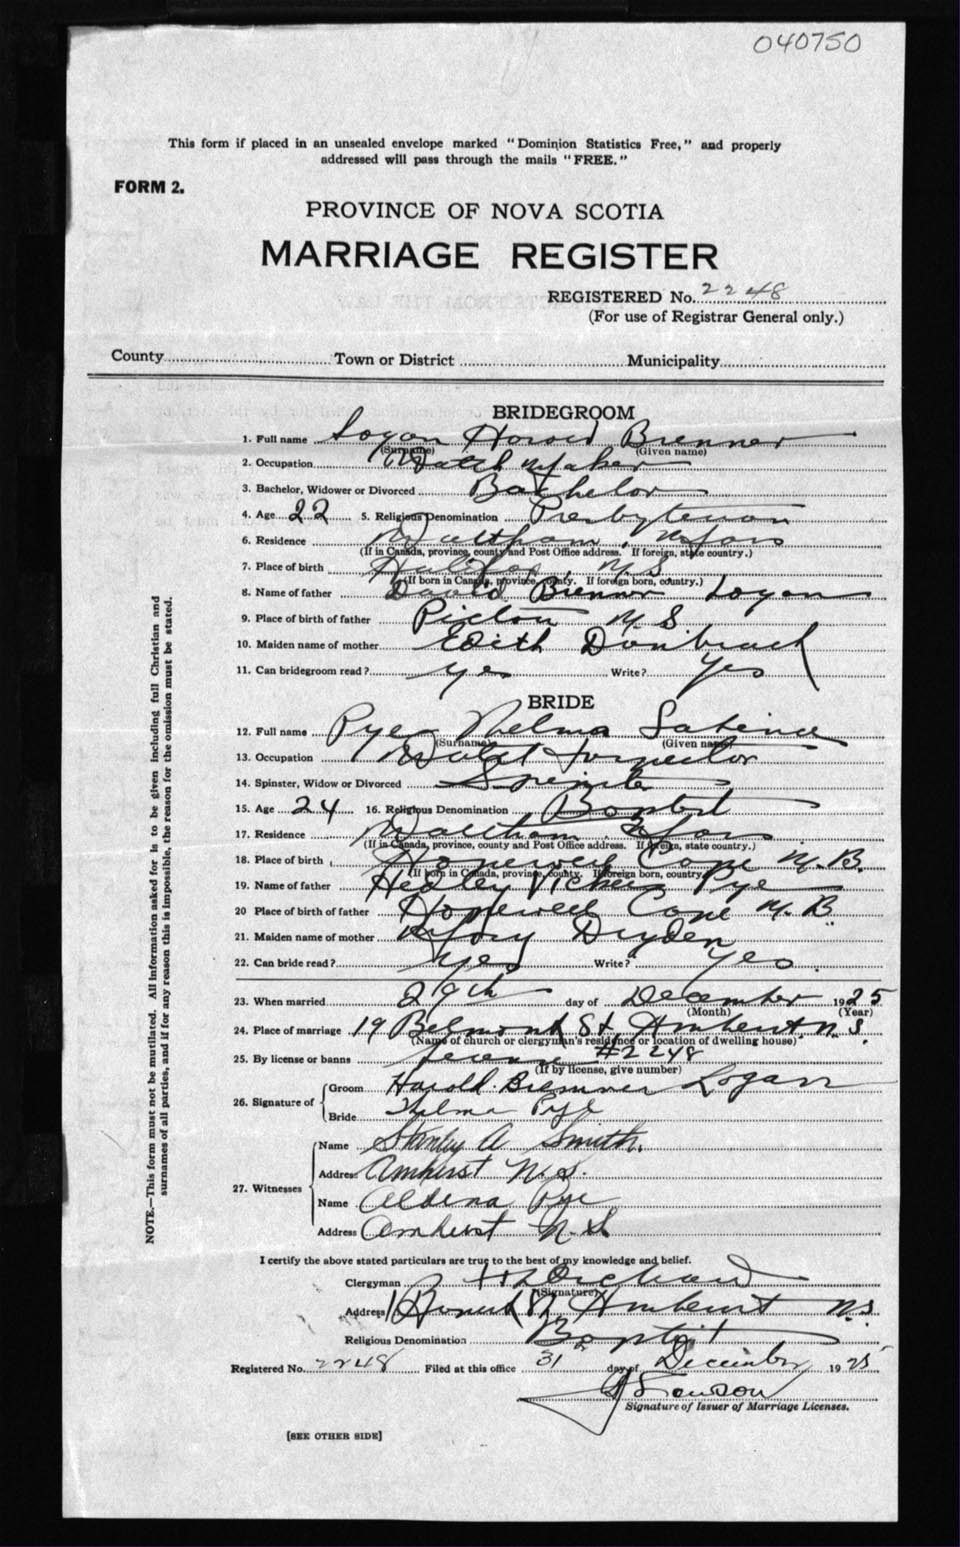 040750
This form if placed in an unsealed envelope marked "Dominion Statistics Free," and properly
addressed will pass through the mails "FREE."
FORM 2.
PROVINCE OF NOVA SCOTIA
MARRIAGE REGISTER
REGISTERED No. 2248
(For use of Registrar General only.)
County Town or District Municipality
BRIDEGROOM
1. Full name Logan Harold Bremner
(Surname) (Given name)
2. Occupation Watch Maker
3. Bachelor, Widower or Divorced Bachelor
4. Age 22 5. Religious Denomination Presbyterian
6. Residence Waltham, Mass
(If in Canada, province, county and Post Office address. If foreign, state country.)
7. Place of birth Halifax N.S.
(If born in Canada, province, county. If foreign born, country.)
8. Name of father David Bremner Logan
9. Place of birth of father Pictou N.S.
10. Maiden name of mother Edith
11. Can bridegroom read? yes Write? yes
BRIDE
12. Full name Pye Thelma
(Surname) (Given name)
13. Occupation Inspector
14. Spinster, Widow or Divorced Spinster
15. Age 24 16. Religious Denomination Baptist
17. Residence Waltham Mass
(If in Canada, province, county and Post Office address. If foreign, state country.)
18. Place of birth Hopewell Cape N.B.
(If born in Canada, province, county. If foreign born, country.)
19. Name of father Hedley Pye
20 Place of birth of father Hopewell Cape N.B.
21. Maiden name of mother Mary Dryden
22. Can bride read? yes Write? yes.
23. When married 29th day of December 1925
(Month) (Year)
24. Place of marriage 19 Belmont St. Amherst N.S.
(Name of church or clergyman's residence or location of dwelling house)
25. By license or banns License #2248
(If by license, give number)
26. Signature of Groom Harold Bremner Logan
Bride Thelma Pye
27. Witnesses Name Stanley A Smith.
Address Amherst N.S.
Name Aldena Pye
Address Amherst N.S
I certify the above stated particulars are true to the best of my knowledge and belief.
Clergyman
(Signature)
Address Amherst N.S.
Religious Denomination Baptist
Registered No. 2248 Filed at this office 31 day of December 1925
Signature of Issuer of Marriage Licenses.
[SEE OTHER SIDE]
NOTE.—This form must not be mutilated. All information asked for is to be given including full Christian and
surnames of all parties, and if for any reason this is impossible, the reason for the omission must be stated.